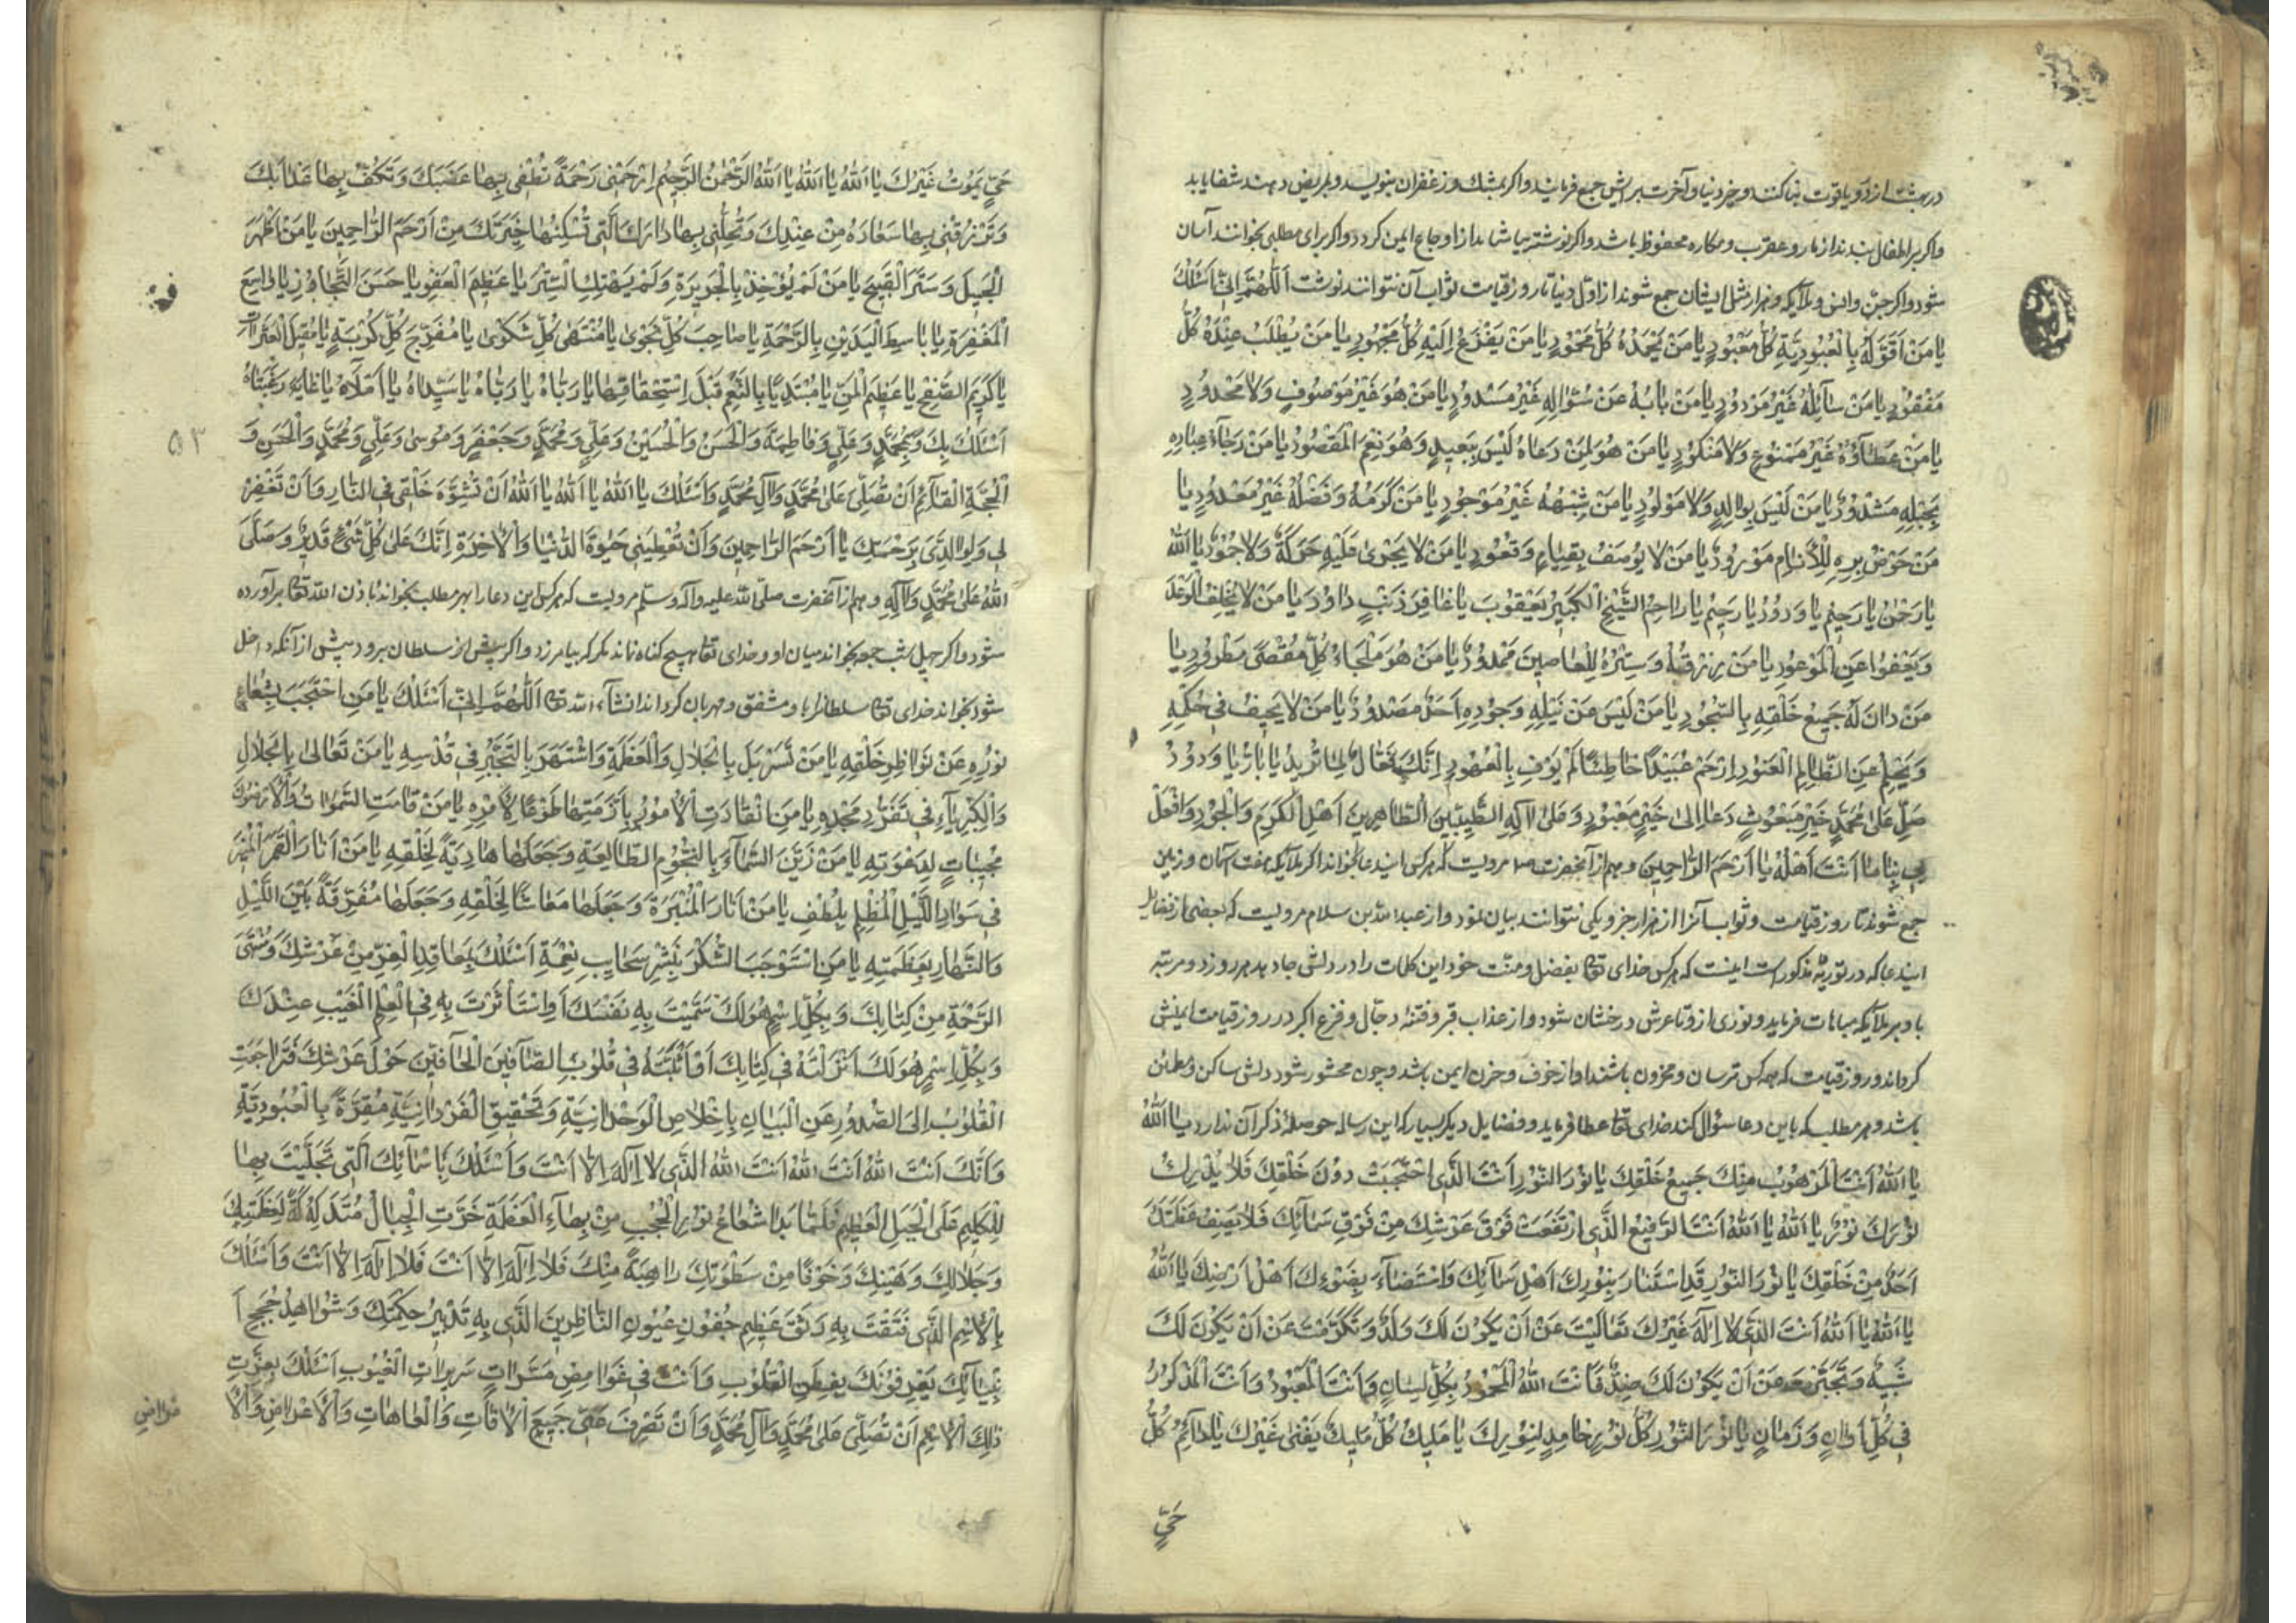 در بهشت از در و یاقوت بنا کنند و خیر دنیا و آخرت برایش جمع فرمایند و اگر بمشک و زعفران بنویسد و بمریض دهند شفا یابد
و اگر بر اطفال بندند از مار و عقرب و مکاره محفوظ باشد و اگر نوشته بیاشامد از اوجاع ایمن گردد و اگر برای مطلبی بخوانند آسان
شود و اگر جن و انس و ملایکه و هزار مثل ایشان جمع شوند از اول دنیا تا روز قیامت ثواب آن نتوانند نوشت اَللّٰهُمَّ اِنّی اَسْئَلُكَ
یا مَنْ اَقَرَّ لَهُ بِالْعُبُودِیَّةِ كُلُّ مَعْبُودٍ یا مَنْ یَحْمَدُهُ كُلُّ مَحْمُودٍ یا مَنْ یَفْزَعُ اِلَیْهِ كُلُّ مَجْهُودٍ یا مَنْ یُطْلَبُ عِنْدَهُ كُلُّ
مَفْقُودٍ یا مَنْ سائِلُهُ غَیْرُ مَرْدُودٍ یا مَنْ بابُهُ عَنْ سُؤالِهِ غَیْرُ مَسْدُودٍ یا مَنْ هُوَ غَیْرُ مَوْصُوفٍ وَلا مَحْدُودٍ
یا مَنْ عَطاؤُهُ غَیْرُ مَمْنُوعٍ وَلا مَنْكُودٍ یا مَنْ هُوَ لِمَنْ دَعاهُ لَیْسَ بِبَعیدٍ وَهُوَ نِعْمَ الْمَقْصُودُ یا مَنْ رَجاءُ عِبادِهِ
بِحَبْلِهِ مَشْدُودٌ یا مَنْ لَیْسَ بِوالِدٍ وَلا مَوْلُودٍ یا مَنْ شِبْهُهُ غَیْرُ مَوْجُودٍ یا مَنْ كَرَمُهُ وَفَضْلُهُ غَیْرُ مَعْدُودٍ یا
مَنْ حَوْضُ بِرِّهِ لِلْاَنامِ مَوْرُودٌ یا مَنْ لا یُوصَفُ بِقِیامٍ وَقُعُودٍ یا مَنْ لا یَجْری عَلَیْهِ حَرَكَةٌ وَلا جُمُودٌ یا اَللهُ
یا رَحْمٰنُ یا رَحیمُ یا وَدُودُ یا رَحیمُ یا راحِمَ الشَّیْخِ الْكَبیرِ یَعْقُوبَ یا غافِرَ ذَنْبِ داوُدَ یا مَنْ لا یُخْلِفُ الْوَعْدَ
وَیَعْفُوا عَنِ الْمَوْعُودِ یا مَنْ رِزْقُهُ وَسِتْرُهُ لِلْعاصینَ مَمْدُودٌ یا مَنْ هُوَ مَلْجَاءُ كُلِّ مُقْصًی مَطْرُودٍ یا
مَنْ دانَ لَهُ جَمیعُ خَلْقِهِ بِالسُّجُودِ یا مَنْ لَیْسَ عَنْ نَیْلِهِ وَجُودِهِ اَحَدٌ مَصْدُودٌ یا مَنْ لا یَحیفُ فی حُكْمِهِ
وَیَحْلُمُ عَنِ الظّالِمِ الْعَنُودِ اِرْحَمْ عُبَیْدًا خاطِئًا لَمْ یُوفِ بِالْعُهُودِ اِنَّكَ فَعّالٌ لِما تُریدُ یا بارُّ یا وَدُودُ
صَلِّ عَلی مُحَمَّدٍ خَیْرِ مَبْعُوثٍ دَعا اِلی خَیْرِ مَعْبُودٍ وَعَلی آلِهِ الطَّیِّبینَ الطّاهِرینَ اَهْلِ الْكَرَمِ وَالْجُودِ وَافْعَلْ
بی بِنا ما اَنْتَ اَهْلُهُ یا اَرْحَمَ الرّاحِمینَ و هم از آنحضرت مرویست که هر کس ایندعا بخواند اگر ملایکه هفت آسمان و زمین
جمع شوند تا روز قیامت و ثواب آنرا از هزار جزو یکی نتوانند بیان نمود و از عبد الله بن سلام مرویست که بعضی از فضایل
ایندعا که در توریة مذکور است اینست که هر کس خدای تعا بفضل و منت خود این کلمات را در دلش جا دهد هر روز دو مرتبه
باو بر ملایکه مباهات فرماید و نوری از و تا عرش درخشان شود و از عذاب قبر و فتنه دجال و فزع اکبر در روز قیامت ایمنش
گرداند و روز قیامت که همه کس ترسان و محزون باشند او از خوف و حزن ایمن باشد و چون محشور شود دلش ساکن و مطمئن
باشد و هر مطلب که باین دعا سؤال کند خدای تعا عطا فرماید و فضایل دیگر بسیار که این رساله حوصلهٔ ذکر آن ندارد یا اَللهُ
یا اَللهُ اَنْتَ الْمَرْهُوبُ مِنْكَ جَمیعُ خَلْقِكَ یا نُورَ النُّورِ اَنْتَ الَّذی احْتَجَبْتَ دُونَ خَلْقِكَ فَلا یُدْرِكُ
نُورَكَ نُورٌ یا اَللهُ یا اَللهُ اَنْتَ الرَّفیعُ الَّذی ارْتَفَعْتَ فَوْقَ عَرْشِكَ مِنْ فَوْقِ سَمائِكَ فَلا یَصِفُ عَظَمَتَكَ
اَحَدٌ مِنْ خَلْقِكَ یا نُورَ النُّورِ قَدِ اسْتَنارَ بِنُورِكَ اَهْلُ سَمائِكَ وَاسْتَضاءَ بِضَوْئِكَ اَهْلُ اَرْضِكَ یا اَللهُ
یا اَللهُ یا اَللهُ اَنْتَ الَّذی لا اِلٰهَ غَیْرُكَ تَعالَیْتَ عَنْ اَنْ یَكُونَ لَكَ وَلَدٌ وَتَكَرَّمْتَ عَنْ اَنْ یَكُونَ لَكَ
شَبیهٌ وَتَجَبَّرْتَ عَنْ اَنْ یَكُونَ لَكَ ضِدٌّ فَاَنْتَ اللهُ الْمَحْمُودُ بِكُلِّ لِسانٍ وَاَنْتَ الْمَعْبُودُ وَاَنْتَ الْمَذْكُورُ
فی كُلِّ اَوانٍ وَزَمانٍ یا نُورَ النُّورِ كُلُّ نُورٍ خامِدٌ لِنُورِكَ یا مَلیكُ كُلُّ مَلیكٍ یَفْنی غَیْرُكَ یا دائِمُ كُلُّ
حَیٍّ
حَیٍّ یَمُوتُ غَیْرُكَ یا اَللهُ یا اَللهُ یا اَللهُ الرَّحْمٰنُ الرَّحیمُ اِرْحَمْنی رَحْمَةً تُطْفِی بِها غَضَبَكَ وَتَكُفُّ بِها عَذابَكَ
وَتَرْزُقُنی بِها سَعادَةً مِنْ عِنْدِكَ وَتُحِلُّنی بِها دارَكَ الَّتی تُسْكِنُها خِیَرَتَكَ مِنْ اَرْحَمَ الرّاحِمینَ یا مَنْ اَظْهَرَ
الْجَمیلَ وَسَتَرَ الْقَبیحَ یا مَنْ لَمْ یُؤْخِذْ بِالْجَریرَةِ وَلَمْ یَهْتِكِ السِّتْرَ یا عَظیمَ الْعَفْوِ یا حَسَنَ التَّجاوُزِ یا واسِعَ
الْمَغْفِرَةِ یا باسِطَ الْیَدَیْنِ بِالرَّحْمَةِ یا صاحِبَ كُلِّ نَجْوی یا مُنْتَهی كُلِّ شَكْوی یا مُفَرِّجَ كُلِّ كُرْبَةٍ یا مُقیلَ الْعَثَراتِ
یا كَریمَ الصَّفْحِ یا عَظیمَ الْمَنِّ یا مُبْتَدِیًا بِالنِّعَمِ قَبْلَ اِسْتِحْقاقِها یا رَبّاهُ یا رَبّاهُ یا سَیِّداهُ یا اَمَلاهُ یا غایَةَ رَغْبَتاهُ
اَسْئَلُكَ بِكَ وَبِمُحَمَّدٍ وَعَلِیٍّ وَفاطِمَةَ وَالْحَسَنِ وَالْحُسَیْنِ وَعَلِیٍّ وَمُحَمَّدٍ وَجَعْفَرٍ وَمُوسی وَعَلِیٍّ وَمُحَمَّدٍ وَالْحَسَنِ وَ
۵۳
الْحُجَّةِ الْقائِمِ اَنْ تُصَلِّیَ عَلی مُحَمَّدٍ وَآلِ مُحَمَّدٍ وَاَسْئَلُكَ یا اَللهُ یا اَللهُ یا اَللهُ اَنْ لا تُشَوِّهَ خَلْقی فِی النّارِ وَاَنْ تَغْفِرَ
لی وَلِوالِدَیَّ بِرَحْمَتِكَ یا اَرْحَمَ الرّاحِمینَ وَاَنْ تُعْطِیَنی خَیْرَ الدُّنْیا وَالْاٰخِرَةِ اِنَّكَ عَلی كُلِّ شَیْءٍ قَدیرٌ وَصَلَّی
اللهُ عَلی مُحَمَّدٍ وَآلِهِ و هم از آنحضرت صلی الله علیه و آله و سلم مرویست که هر کس این دعا را بهر مطلب بخواند باذن الله تعا برآورده
شود و اگر چهل شب جمعه بخواند میان او و خدای تعا هیچ گناه نماند مگر که بیامرزد و اگر پیش از سلطان برود پیش از آنکه داخل
شود بخواند خدای تعا سلطانرا باو مشفق و مهربان گرداند انشاء الله تعا اَللّٰهُمَّ اِنّی اَسْئَلُكَ یا مَنِ احْتَجَبَ بِشُعاعِ
نُورِهِ عَنْ نَواظِرِ خَلْقِهِ یا مَنْ تَسَرْبَلَ بِالْجَلالِ وَالْعَظَمَةِ وَاشْتَهَرَ بِالتَّجَبُّرِ فی قُدْسِهِ یا مَنْ تَعالی بِالْجَلالِ
وَالْكِبْرِیاءِ فی تَفَرُّدِ مَجْدِهِ یا مَنِ انْقادَتِ الْاُمُورُ بِاَزِمَّتِها طَوْعًا لِاَمْرِهِ یا مَنْ قامَتِ السَّمٰواتُ وَالْاَرَضُونَ
مُجیباتٍ لِدَعْوَتِهِ یا مَنْ زَیَّنَ السَّماءَ بِالنُّجُومِ الطّالِعَةِ وَجَعَلَها هادِیَةً لِخَلْقِهِ یا مَنْ اَنارَ الْقَمَرَ الْمُنیرَ
فی سَوادِ اللَّیْلِ الْمُظْلِمِ بِلُطْفِهِ یا مَنْ اَنارَ الْمُنیرَةَ وَجَعَلَها مَعاشًا لِخَلْقِهِ وَجَعَلَها مُفَرِّقَةً بَیْنَ اللَّیْلِ
وَالنَّهارِ بِعَظَمَتِهِ یا مَنِ اسْتَوْجَبَ الشُّكْرَ بِنَشْرِ سَحایِبِ نِعَمِهِ اَسْئَلُكَ بِمَعاقِدِ الْعِزِّ مِنْ عَرْشِكَ وَمُنْتَهَی
الرَّحْمَةِ مِنْ كِتابِكَ وَبِكُلِّ اسْمٍ هُوَ لَكَ سَمَّیْتَ بِهِ نَفْسَكَ اَوِ اسْتَأْثَرْتَ بِهِ فِی الْعِلْمِ الْغَیْبِ عِنْدَكَ
وَبِكُلِّ اسْمٍ هُوَ لَكَ اَنْزَلْتَهُ فی كِتابِكَ اَوْ اَثْبَتَّهُ فی قُلُوبِ الصّافّینَ الْحافّینَ حَوْلَ عَرْشِكَ فَتَراجَعَتِ
الْقُلُوبُ اِلَی الصُّدُورِ عَنِ الْبَیانِ بِاِخْلاصِ الْوَحْدانِیَّةِ وَتَحْقیقِ الْفَرْدانِیَّةِ مُقِرَّةً بِالْعُبُودِیَّةِ
وَاَنَّكَ اَنْتَ اللهُ اَنْتَ اللهُ اَنْتَ اللهُ الَّذی لا اِلٰهَ اِلّا اَنْتَ وَاَسْئَلُكَ بِاَسْمائِكَ الَّتی تَجَلَّیْتَ بِها
لِلْكَلیمِ عَلَی الْجَبَلِ الْعَظیمِ فَلَمّا بَدا شُعاعُ نُورِ الْحُجُبِ مِنْ بَهاءِ الْعَظَمَةِ خَرَّتِ الْجِبالُ مُتَدَكْدِكَةً لِعَظَمَتِكَ
وَجَلالِكَ وَهَیْبَتِكَ وَخَوْفًا مِنْ سَطْوَتِكَ راهِبَةً مِنْكَ فَلا اِلٰهَ اِلّا اَنْتَ فَلا اِلٰهَ اِلّا اَنْتَ وَاَسْئَلُكَ
بِالْاِسْمِ الَّذی فَتَقْتَ بِهِ رَتْقَ عَظیمِ جُفُونِ عُیُونِ النّاظِرینَ الَّذی بِهِ تَدْبیرُ حِكْمَتِكَ وَشَواهِدُ حُجَجِ اَ
نْبِیائِكَ یَعْرِفُونَكَ بِفِطَنِ الْقُلُوبِ وَاَنْتَ فی غَوامِضِ مُسَرّاتِ سَریراتِ الْغُیُوبِ اَسْئَلُكَ بِعِزَّةِ
ذٰلِكَ الْاِسْمِ اَنْ تُصَلِّیَ عَلی مُحَمَّدٍ وَآلِ مُحَمَّدٍ وَاَنْ تَصْرِفَ عَنّی جَمیعَ الْاٰفاتِ وَالْعاهاتِ وَالْاَعْراضِ وَالْاَ
مْراضِ